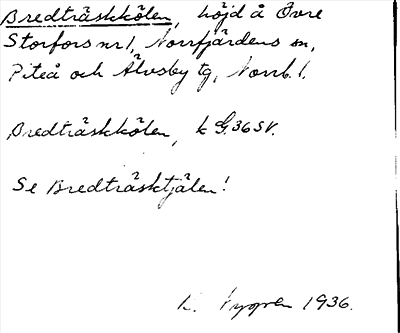 Bredträskkölen, höjd å Övre
Storfors nr 1, Norrfjärdens sn,
Piteå och Älvsby tg, Norrb. l.
Bredträskkölen, k G.36 SV.
Se Bredträsktjälen!
1936.